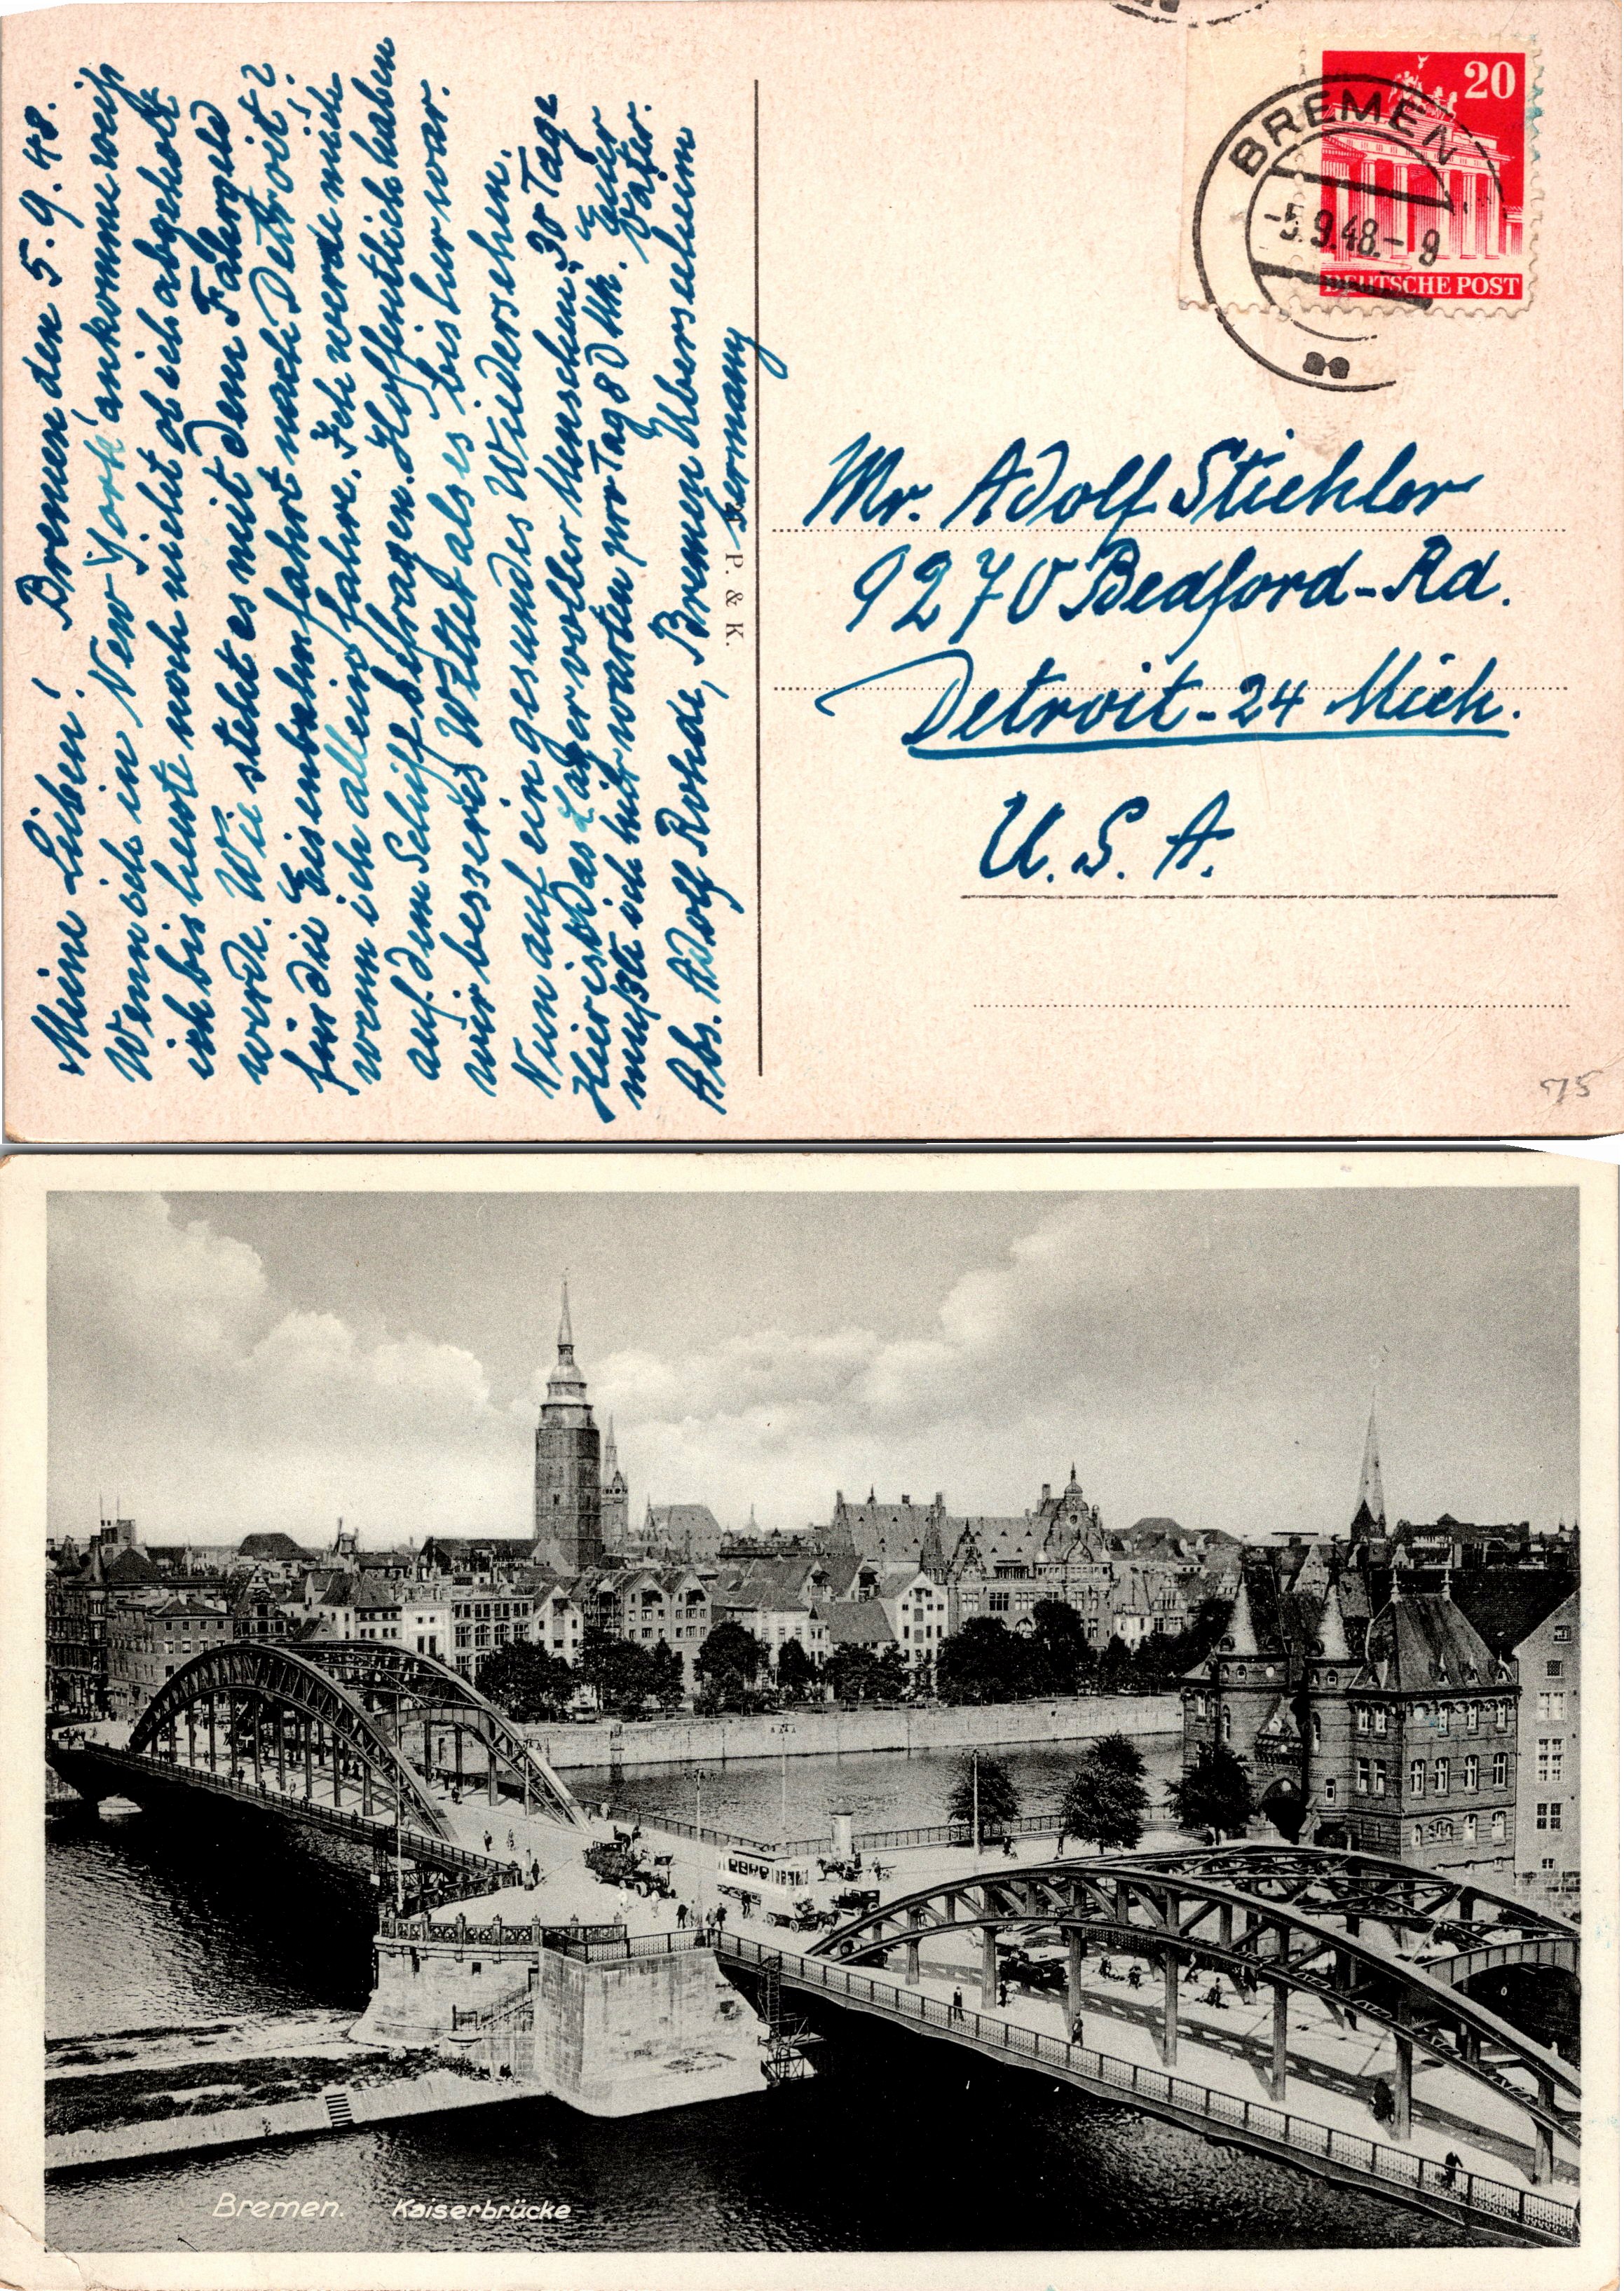 Bremen den 5.9.48.
Meine Lieben!
Wenn ich in New York ankomme weiß
ich bis heute noch nicht ob ich abgeholt
werde. Wie steht es mit dem Fahrgeld
für die Eisenbahnfahrt nach Detroit?
wenn ich allein fahre. Ich werde mich
auf dem Schiff befragen. Hoffentlich haben
wir besseres Wetter als es bisher war.
Nun auf ein gesundes Wiedersehen.
Hier ist das Lager voller Menschen, 30 Tage
mußte ich hier warten pro Tag 8 DMk. Euer
Vater.
Abs. Adolf Rohde, Bremen Überseeheim
Germany
P. & K.
20
DEUTSCHE POST
BREMEN
-5.9.48.-8
Mr. Adolf Stichler
9270 Bedford-Rd.
Detroit-24 Mich.
U. S. A.
Bremen. Kaiserbrücke